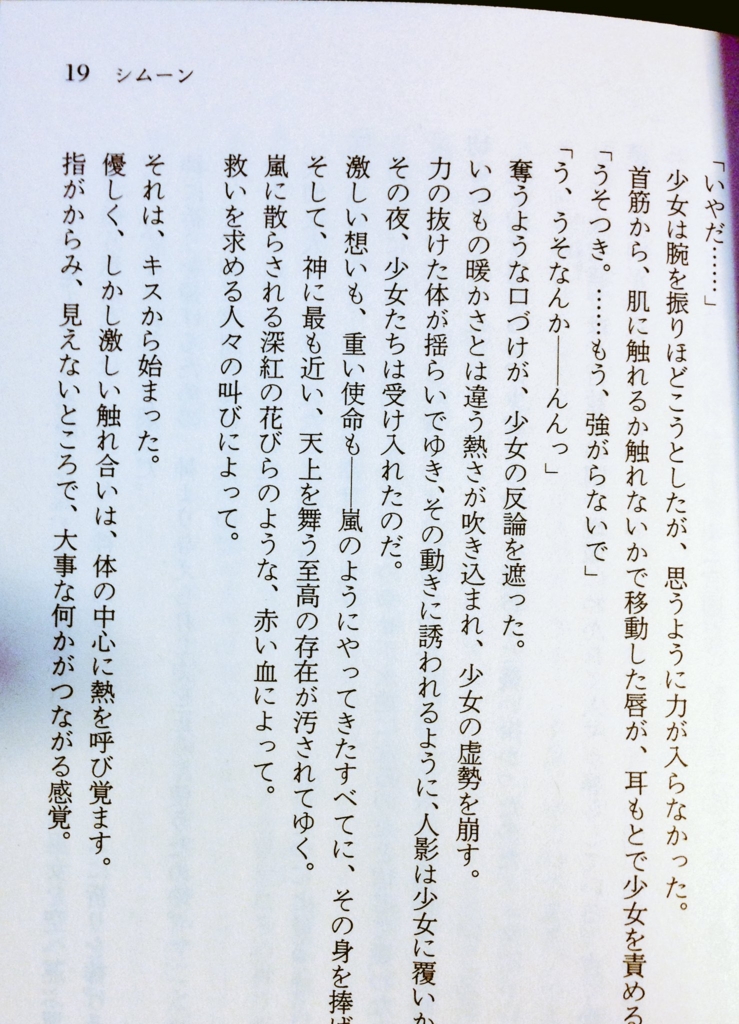 19 シムーン
「いやだ……」
少女は腕を振りほどこうとしたが、思うように力が入らなかった。
首筋から、肌に触れるか触れないかで移動した唇が、耳もとで少女を責める
「うそつき。……もう、強がらないで」
「う、うそなんか――んんっ」
奪うような口づけが、少女の反論を遮った。
いつもの暖かさとは違う熱さが吹き込まれ、少女の虚勢を崩す。
力の抜けた体が揺らいでゆき、その動きに誘われるように、人影は少女に覆いか
その夜、少女たちは受け入れたのだ。
激しい想いも、重い使命も――嵐のようにやってきたすべてに、その身を捧げ
そして、神に最も近い、天上を舞う至高の存在が汚されてゆく。
嵐に散らされる深紅の花びらのような、赤い血によって。
救いを求める人々の叫びによって。
それは、キスから始まった。
優しく、しかし激しい触れ合いは、体の中心に熱を呼び覚ます。
指がからみ、見えないところで、大事な何かがつながる感覚。